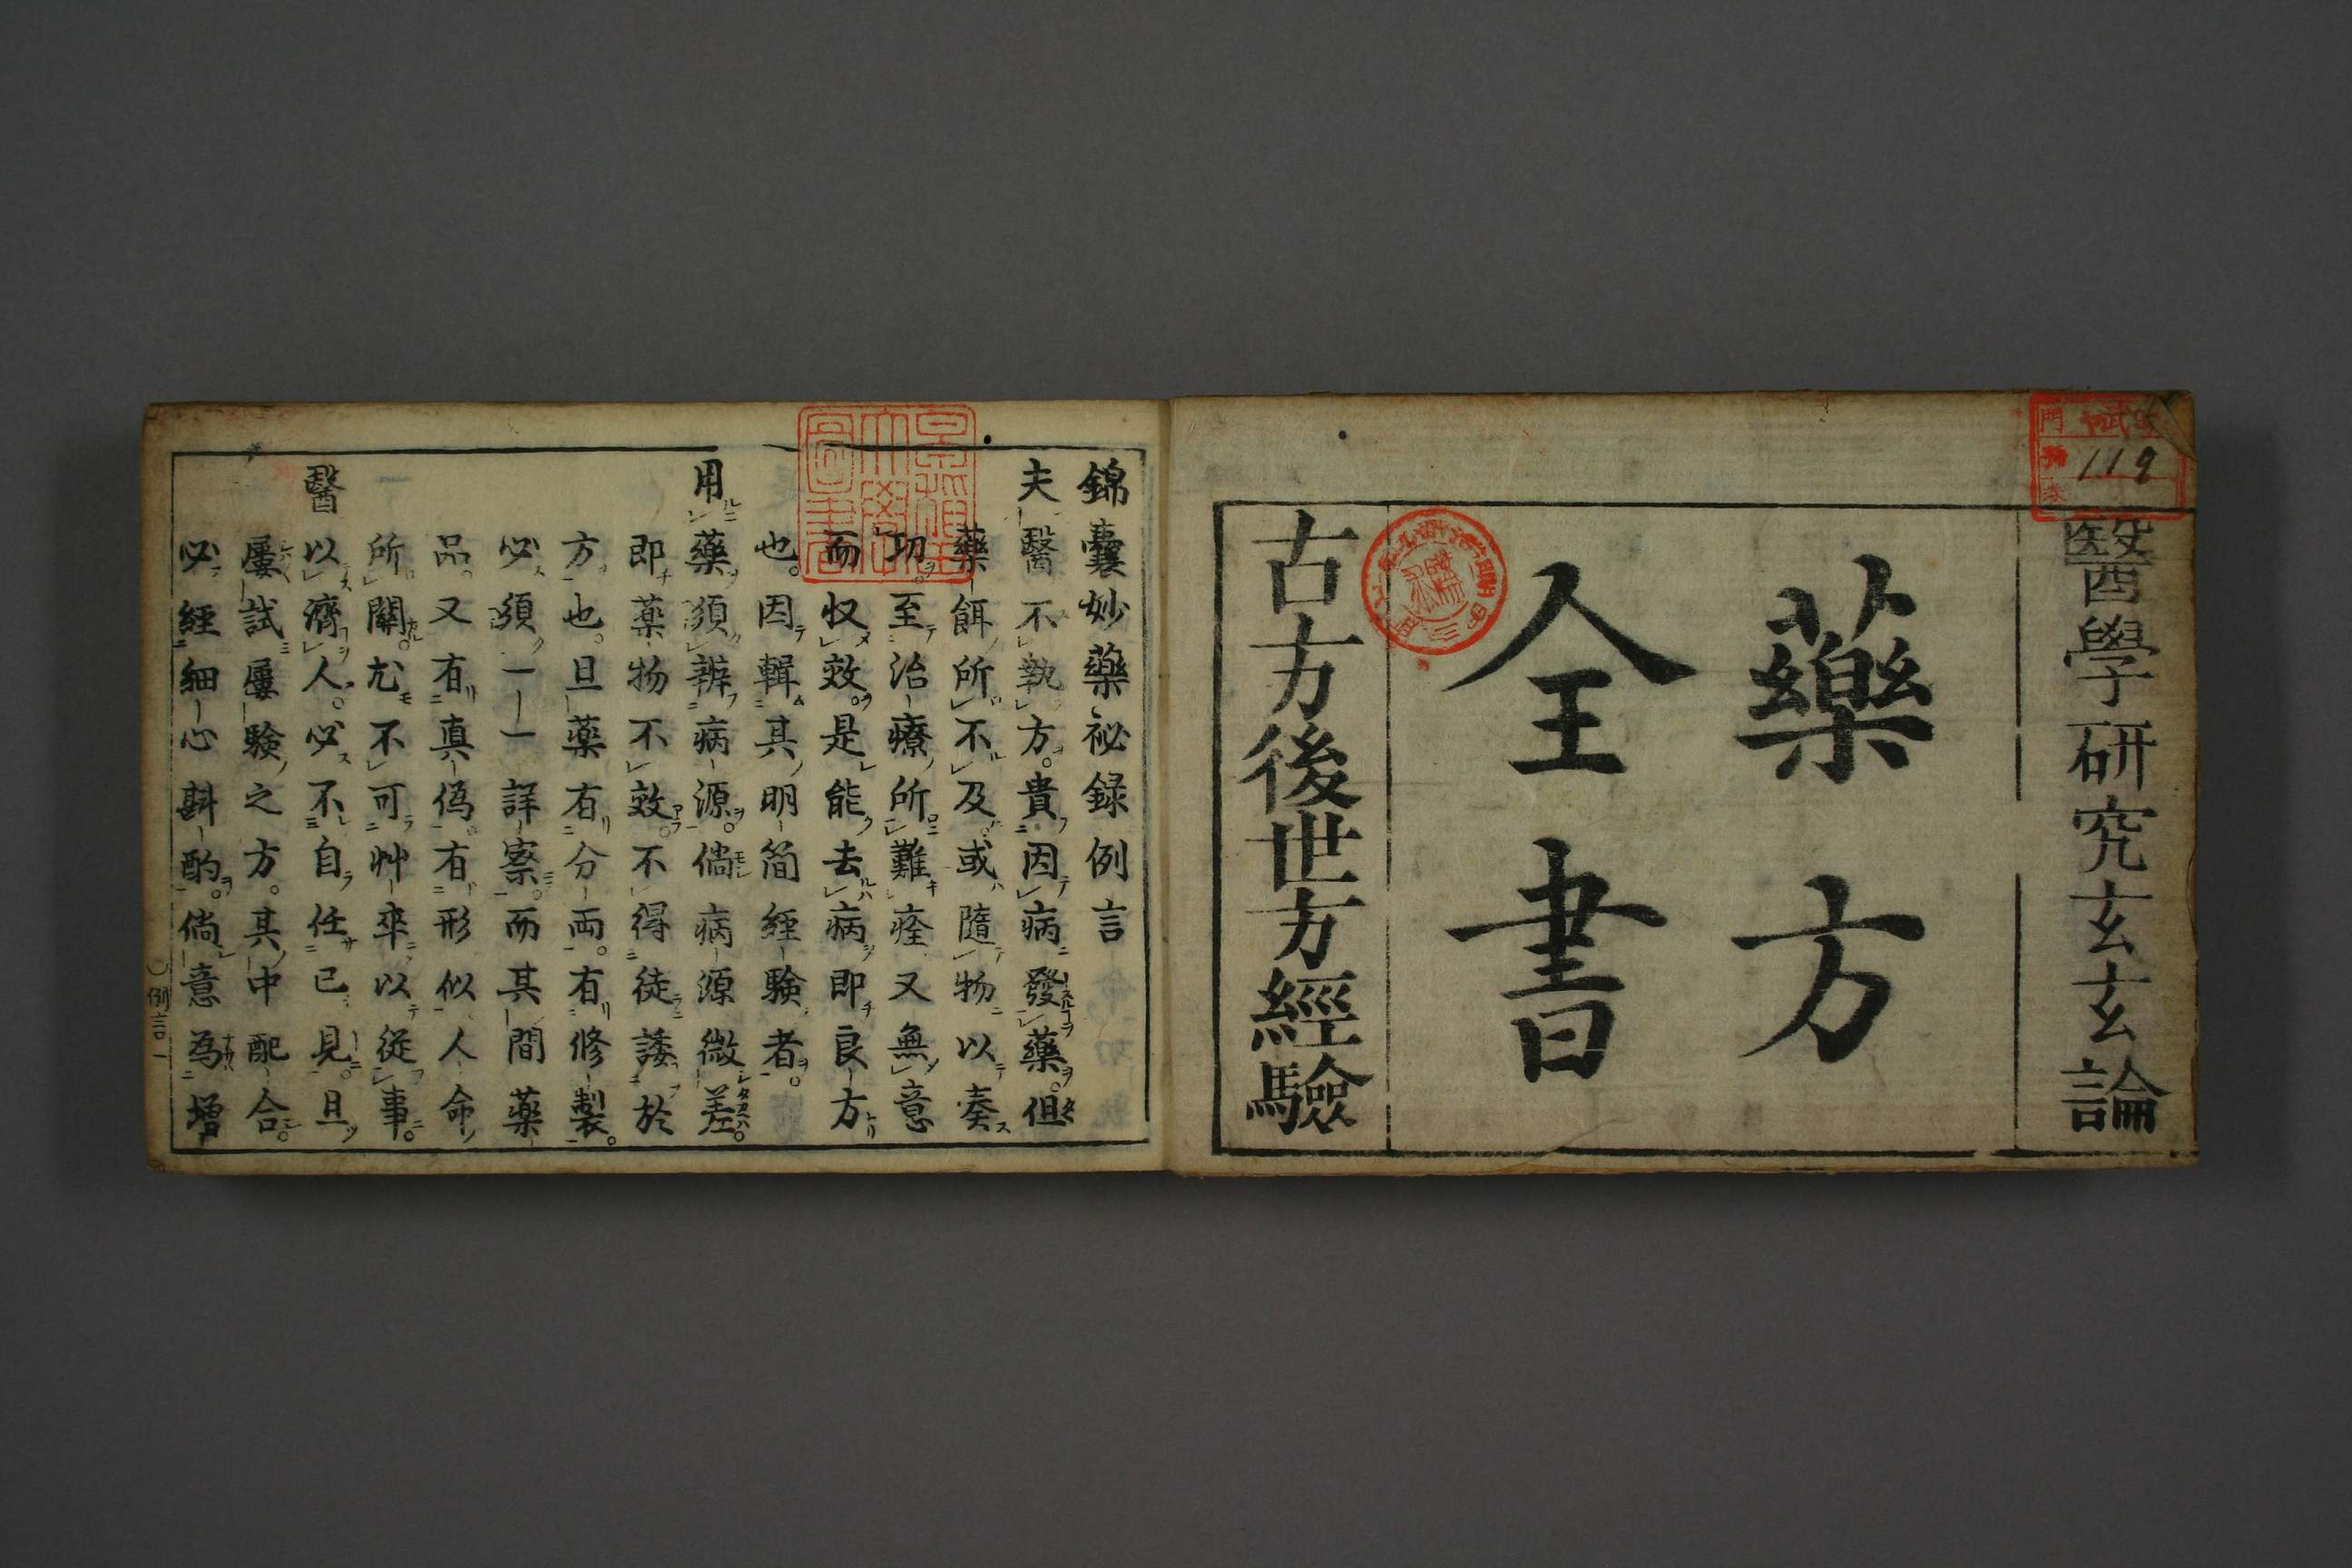 醫學研究玄玄論
藥方
全書
古方後世方經驗
門
119
錦囊妙藥祕録例言
夫醫不執方。貴因病發藥。但
藥餌所不及。或隨物以奏
功。至治療所難痊又無意
而収效。是能去病即良方
也。因輯其明簡經験者。
用藥須辨病源。倘病源微差。
即薬物不效。不得徒諉於
方也。且薬有分両。有修製。
必須一一詳察。而其間薬
品。又有真偽。有形似人命
所關。尤不可艸率以從事。
醫以濟人。必不自任已見。且
屢試屢験之方。其中配合。
必經細心斟酌。倘意為増
例言一